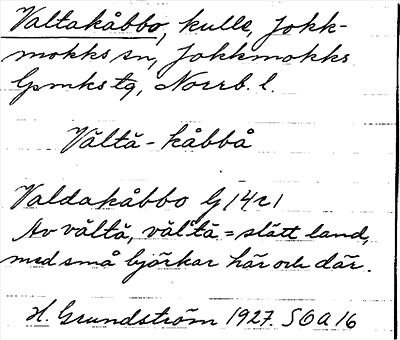 Valtakåbbo, kulle, Jokk-
mokks sn, Jokkmokks
lpmks tg, Norrb. l.
Vāltā - kåbbå
Valdakåbbo G 14 r 1
Av vāltā, vāl'tā = slätt land,
med små björkar här och där.
H. Grundström 1927. SOA 16